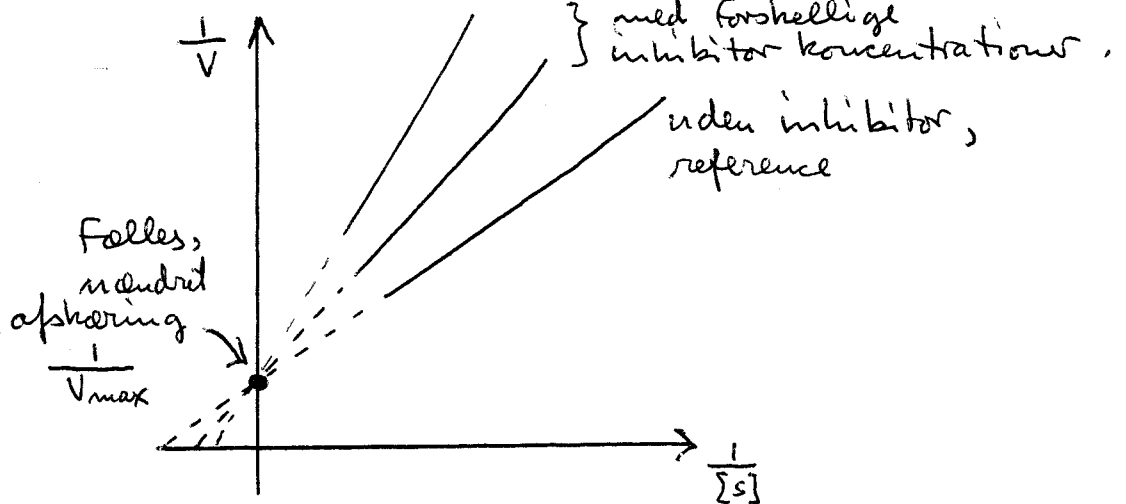 1
V
} med forskellige
inhibitor koncentrationer.
uden inhibitor,
reference
Fælles,
uændret
afskæring
1
Vmax
1
[S]